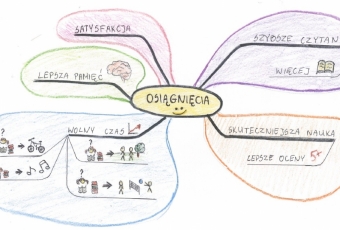 SATYSFAKCJA
SZYBSZE CZYTAN
LEPSZA PAMIĘĆ
WIĘCEJ
OSIĄGNIĘCIA
WOLNY CZAS
SKUTECZNIEJSZA NAUKA
LEPSZE OCENY 5+
?
?
?
?